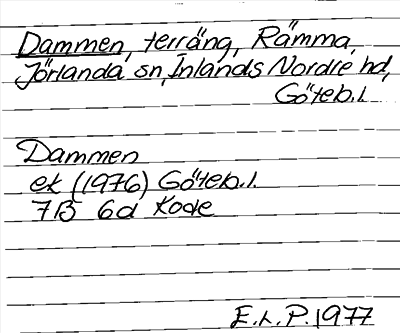 Dammen, terräng, Rämma,
Jörlanda sn, Inlands Nordre hd,
Göteb.l.
Dammen
ek (1976) Göteb.l.
7B 6d Kode
E.L.P. 1977